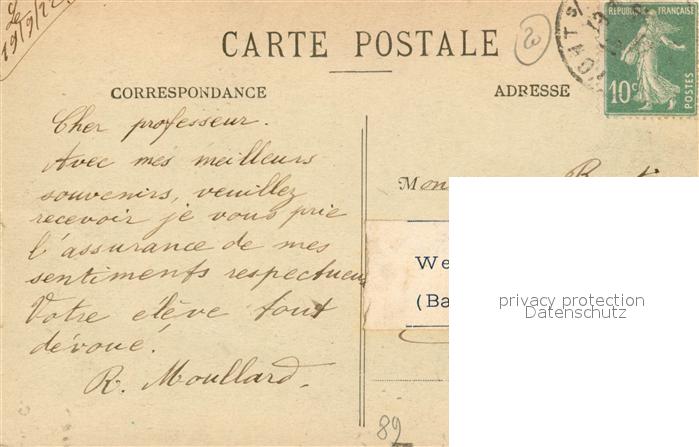 Le
19/9/22
CARTE POSTALE
CORRESPONDANCE
ADRESSE
RÉPUBLIQUE FRANÇAISE
10c
POSTES
Cher professeur.
Avec mes meilleurs
souvenirs, veuillez
recevoir je vous prie
l'assurance de mes
sentiments respectueux
Votre elève tout
dévoué.
R. Moullard.
Mon
We
(Ba
privacy protection
Datenschutz
89